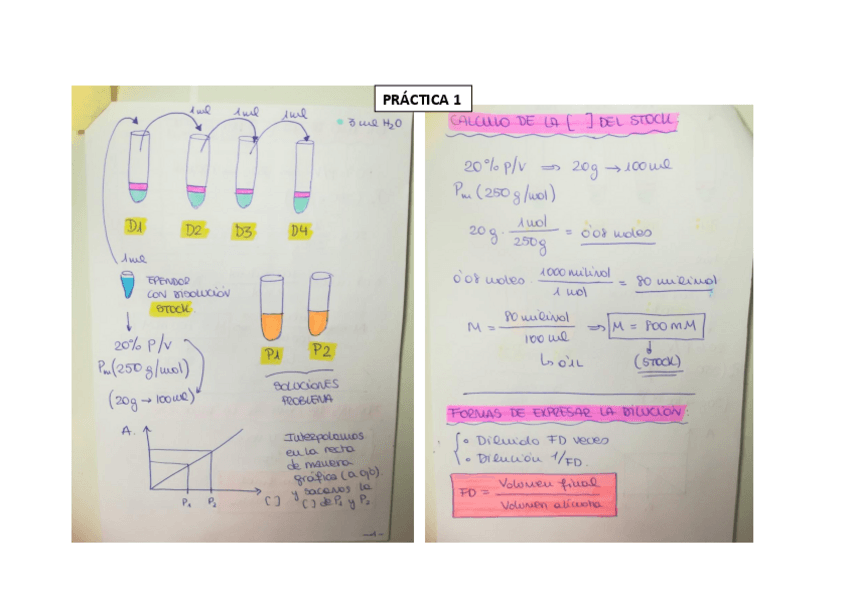 PRÁCTICA 1
1 ml 1 ml 1 ml
3 ml H2O
D1 D2 D3 D4
1 ml
EPENDOR
CON DISOLUCIÓN
STOCK
20% P/V
Pm (250 g/mol)
(20g → 100 ml)
P1 P2
SOLUCIONES
PROBLEMA
A.
P1 P2 [ ]
Interpolamos
en la recta
de manera
gráfica (a ojo).
y sacamos la
[ ] de P1 y P2
-1-
CALCULO DE LA [ ] DEL STOCK
20% P/V ⇒ 20g → 100 ml
Pm (250 g/mol)
20 g · 1 mol / 250 g = 0'08 moles
0'08 moles · 1000 milimol / 1 mol = 80 milimol
M = 80 milimol / 100 ml ⇒ M = 800 mM
↳ 0'1L (STOCK)
FORMAS DE EXPRESAR LA DILUCIÓN:
• Diluido FD veces
• Dilución 1/FD.
FD = Volumen final / Volumen alícuota